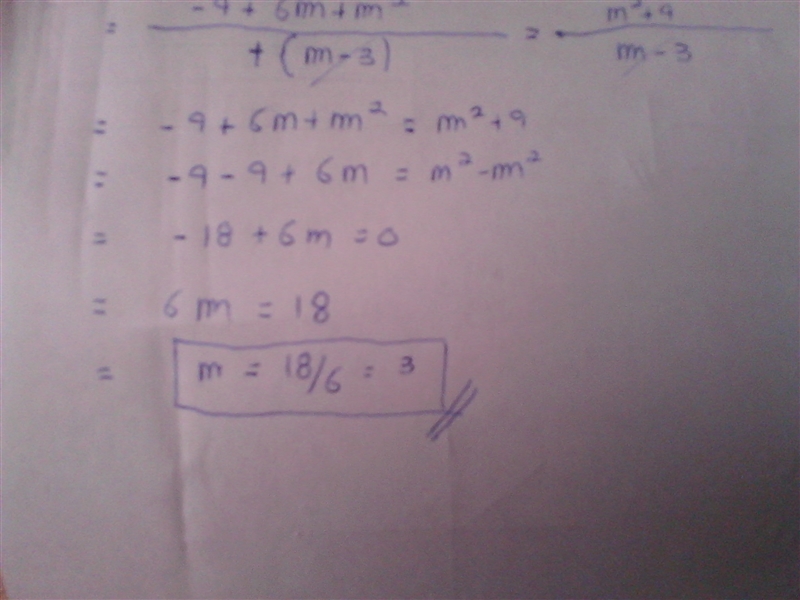 = -9 + 6m + m² / +(m-3) = m²+9 / m-3
= -9+6m+m² = m²+9
= -9-9+6m = m²-m²
= -18+6m = 0
= 6m = 18
= m = 18/6 = 3